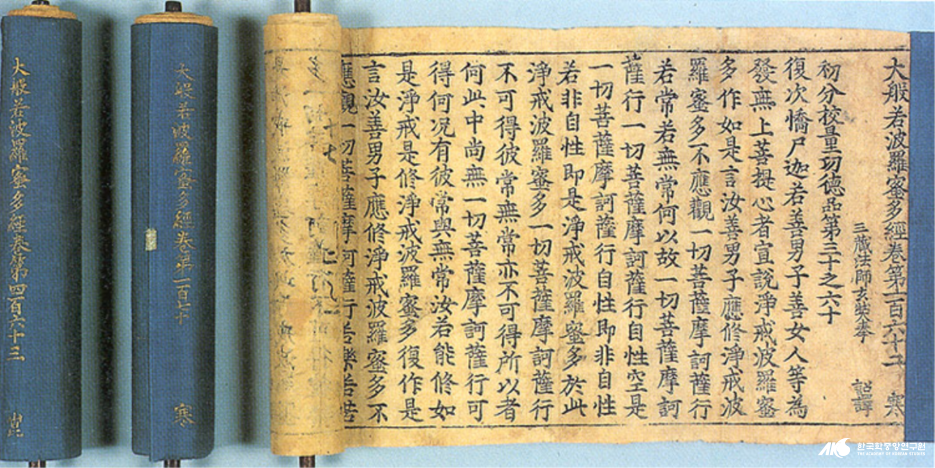 大般若波羅蜜多經卷第一百六十二 寒
三藏法師玄奘奉 詔譯
初分校量功德品第三十之六十
復次憍尸迦若善男子善女人等為
發無上菩提心者宣說淨戒波羅蜜
多作如是言汝善男子應修淨戒波
羅蜜多不應觀一切菩薩摩訶薩行
若常若無常何以故一切菩薩摩訶
薩行一切菩薩摩訶薩行自性空是
一切菩薩摩訶薩行自性即非自性
若非自性即是淨戒波羅蜜多於此
淨戒波羅蜜多一切菩薩摩訶薩行
不可得彼常無常亦不可得所以者
何此中尚無一切菩薩摩訶薩行可
得何況有彼常與無常汝若能修如
是淨戒是修淨戒波羅蜜多復作是
言汝善男子應修淨戒波羅蜜多不
應觀一切菩薩摩訶薩行若樂若苦
大般若波羅蜜多經卷第一百七十 寒
大般若波羅蜜多經卷第四百六十三 崑
한국학중앙연구원
THE ACADEMY OF KOREAN STUDIES